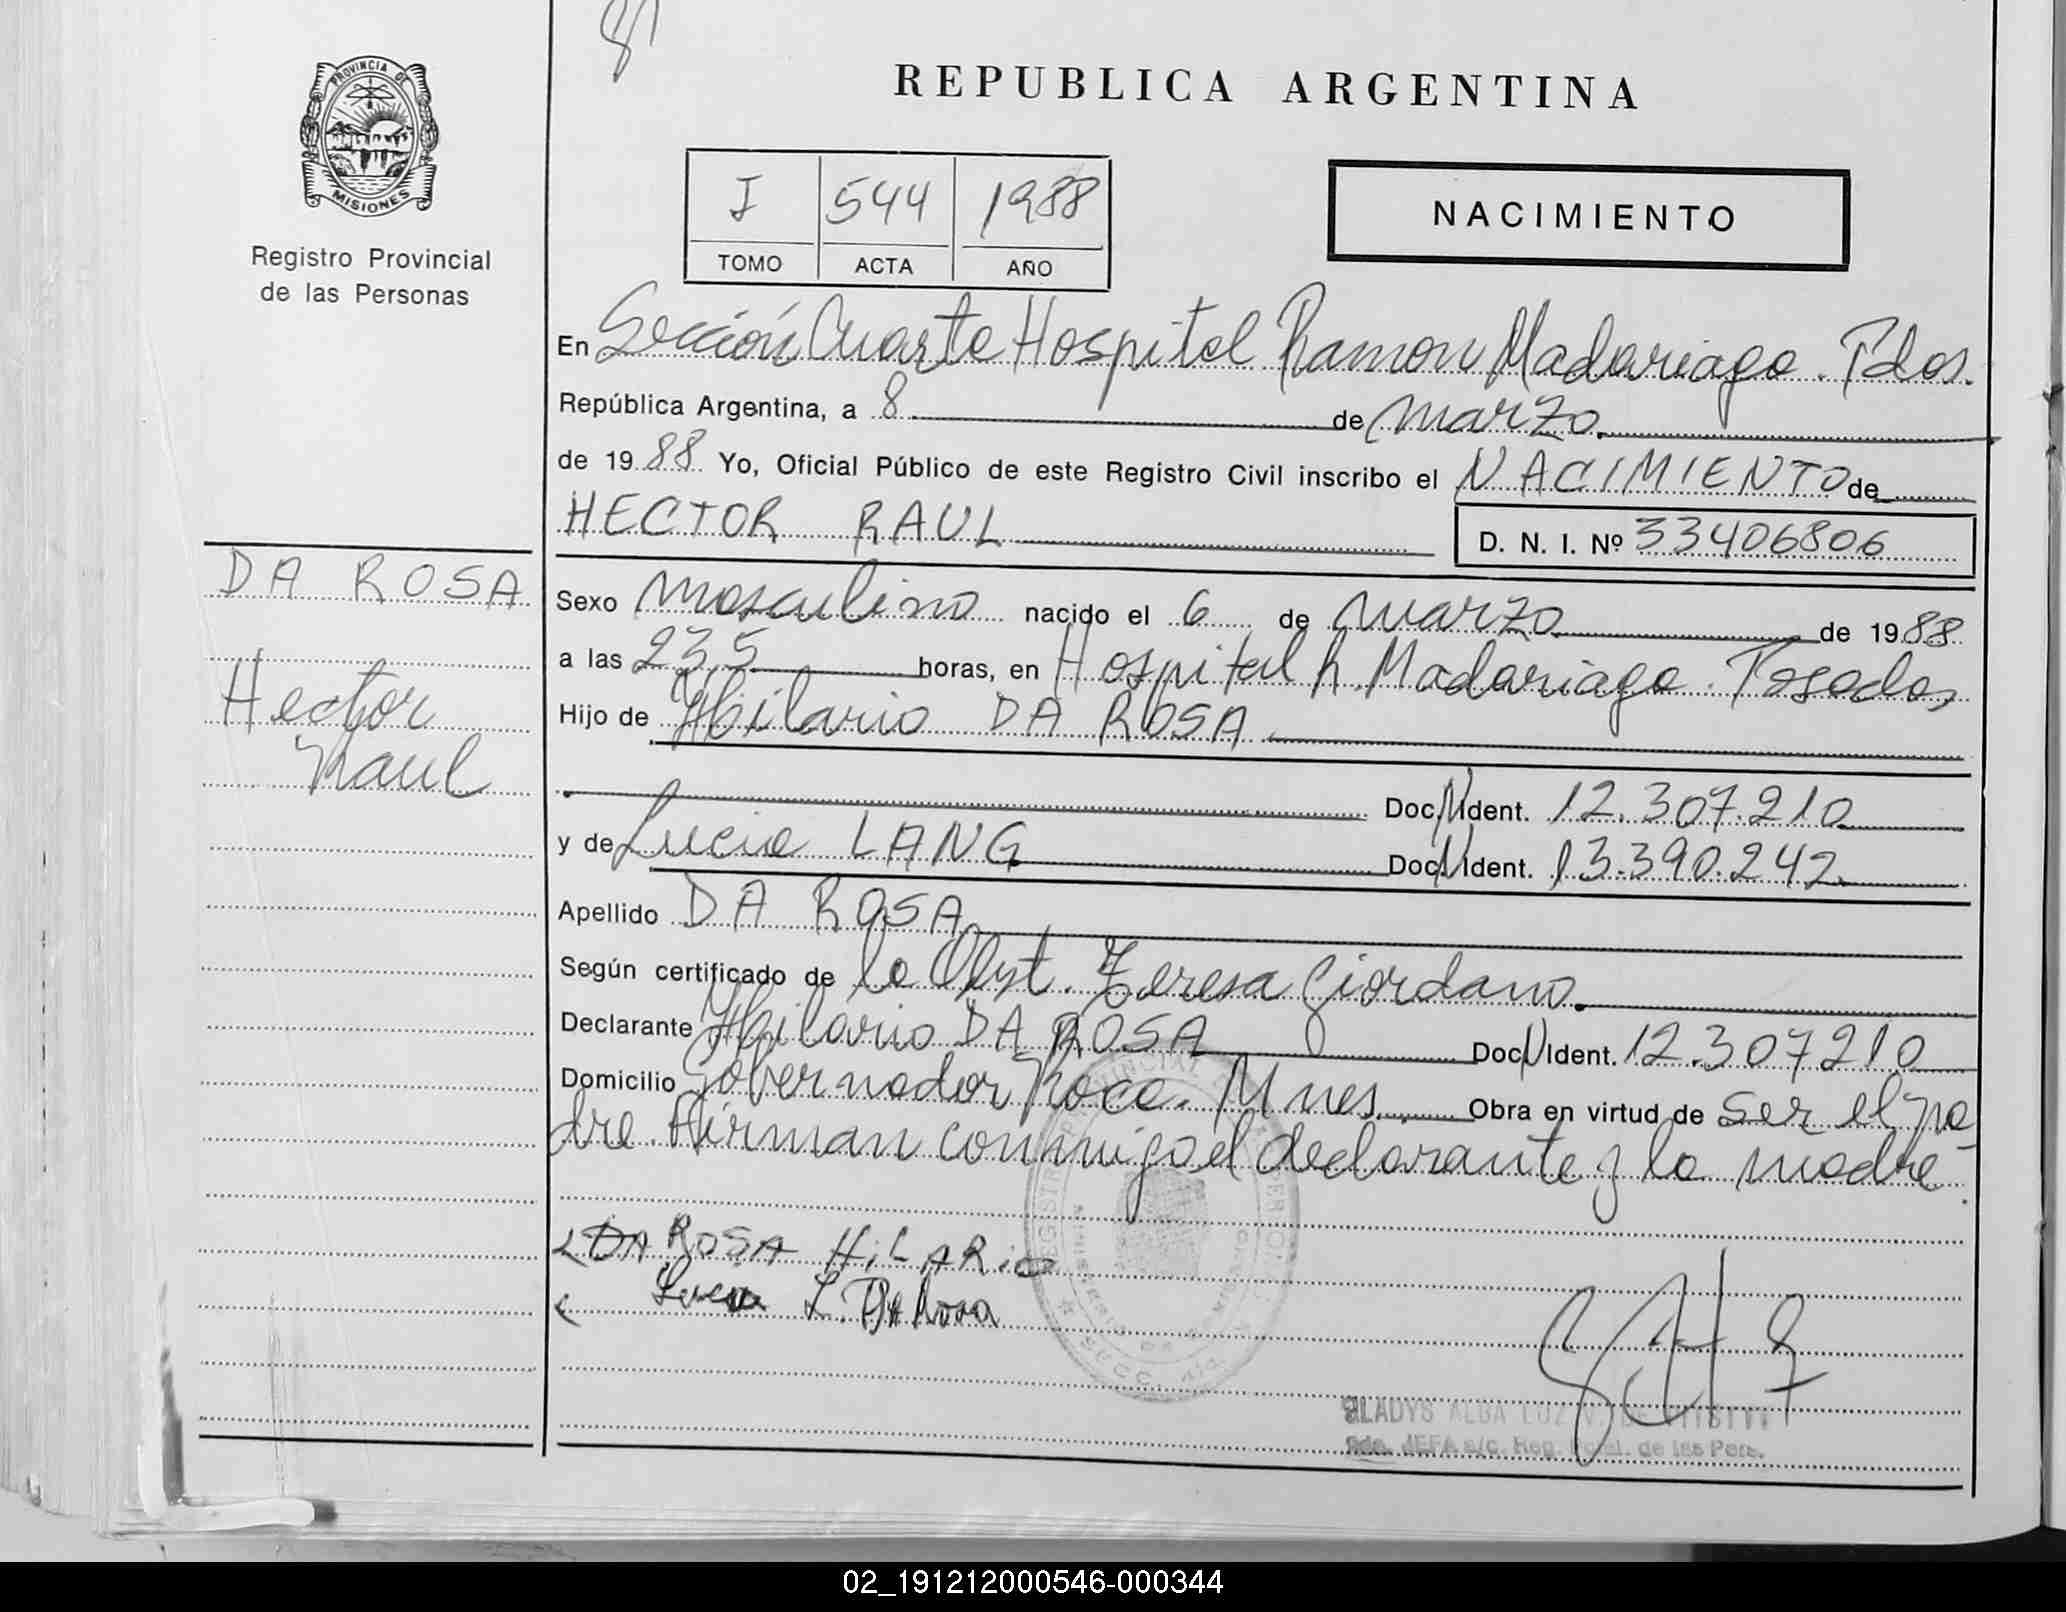 PROVINCIA DE
MISIONES
Registro Provincial
de las Personas
DA ROSA
Hector
Raul
REPUBLICA ARGENTINA
I 544 1988
TOMO ACTA AÑO
NACIMIENTO
En Sección Cuarta Hospital Ramon Madariaga. Pdas.
República Argentina, a 8 de marzo
de 1988 Yo, Oficial Público de este Registro Civil inscribo el NACIMIENTO de
HECTOR RAUL
D. N. I. Nº 33406806
Sexo masculino nacido el 6 de marzo de 1988
a las 23,5 horas, en Hospital R. Madariaga. Posadas
Hijo de Hilario DA ROSA
Doc. N Ident. 12.307.210
y de Lucia LANG Doc. N Ident. 13.390.242
Apellido DA ROSA
Según certificado de la Obst. Teresa Giordano
Declarante Hilario DA ROSA Doc. N Ident. 12.307210
Domicilio Gobernador Roca. Mnes. Obra en virtud de ser el pa-
dre. Firman conmigo el declarante y la madre.
DA ROSA HiLARio
Lucia L. Da Rosa
GLADYS ALBA LUZ V. DE
JEFA a/c. Reg. Pcial. de las Pers.
02_191212000546-000344